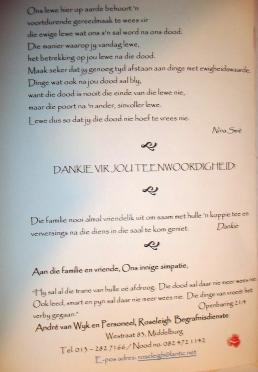 Ons lewe hier op aarde behoort 'n
voortdurende gereedmaak te wees vir
die ewige lewe wat ons s'n sal word na ons dood.
Die manier waarop jy vandag lewe,
het betrekking op jou lewe na die dood.
Maak seker dat jy genoeg tyd afstaan aan dinge met ewigheidswaarde.
Dinge wat ook na jou dood sal bly,
want die dood is nooit die einde van die lewe nie,
maar die poort na 'n ander, sinvoller lewe.
Lewe dus so dat jy die dood nie hoef te vrees nie.
Nina Smit
DANKIE VIR JOU TEENWOORDIGHEID
Die familie nooi almal vriendelik uit om saam met hulle 'n koppie tee en
verversings na die diens in die saal te kom geniet.
Dankie
Aan die familie en vriende, Ons innige simpatie,
"Hy sal al die trane van hulle oë afdroog. Die dood sal daar nie meer wees nie.
Ook leed, smart en pyn sal daar nie meer wees nie. Die dinge van vroeër het
verby gegaan."
Openbaring 21:4
André van Wyk en Personeel, Roseleigh Begrafnisdienste
Westraat 83, Middelburg
Tel: 013 - 282 7166 / Nood no: 082 472 1142
E-pos adres: roseleigh@lantic.net